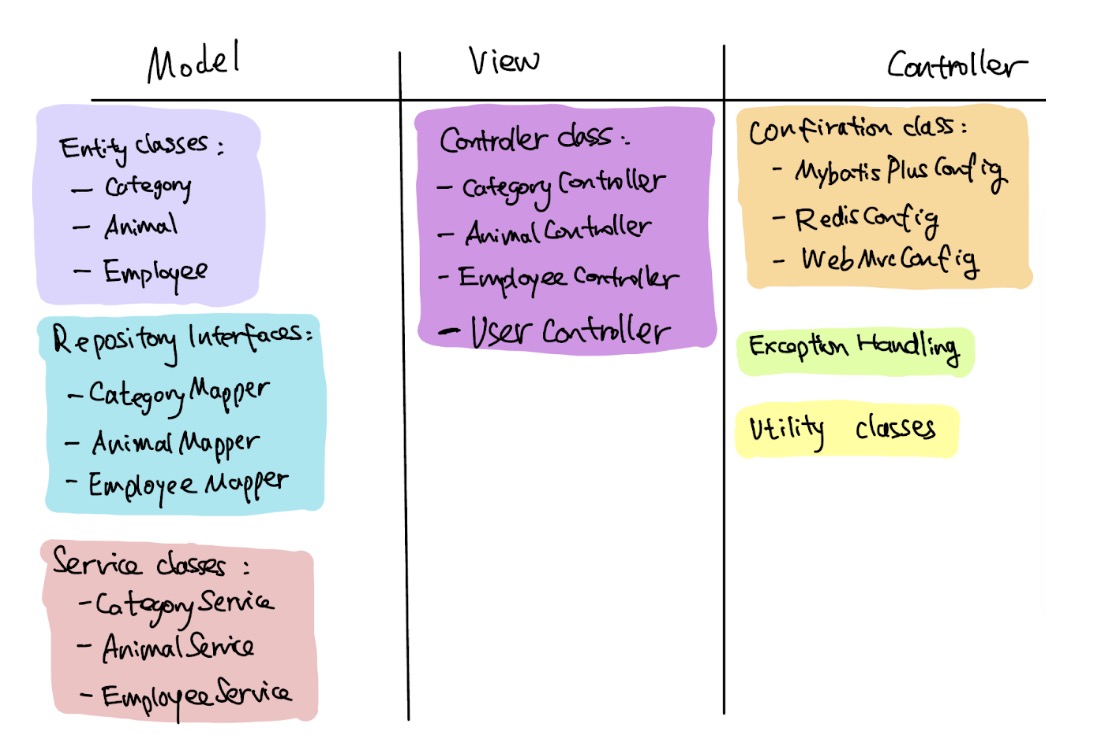 Model
View
Controller
Entity classes:
- Category
- Animal
- Employee
Repository Interfaces:
- CategoryMapper
- AnimalMapper
- EmployeeMapper
Service classes:
- CategoryService
- AnimalService
- EmployeeService
Controller class:
- CategoryController
- AnimalController
- EmployeeController
- User Controller
Confiration class:
- MybatisPlusConfig
- RedisConfig
- WebMvcConfig
Exception Handling
Utility classes